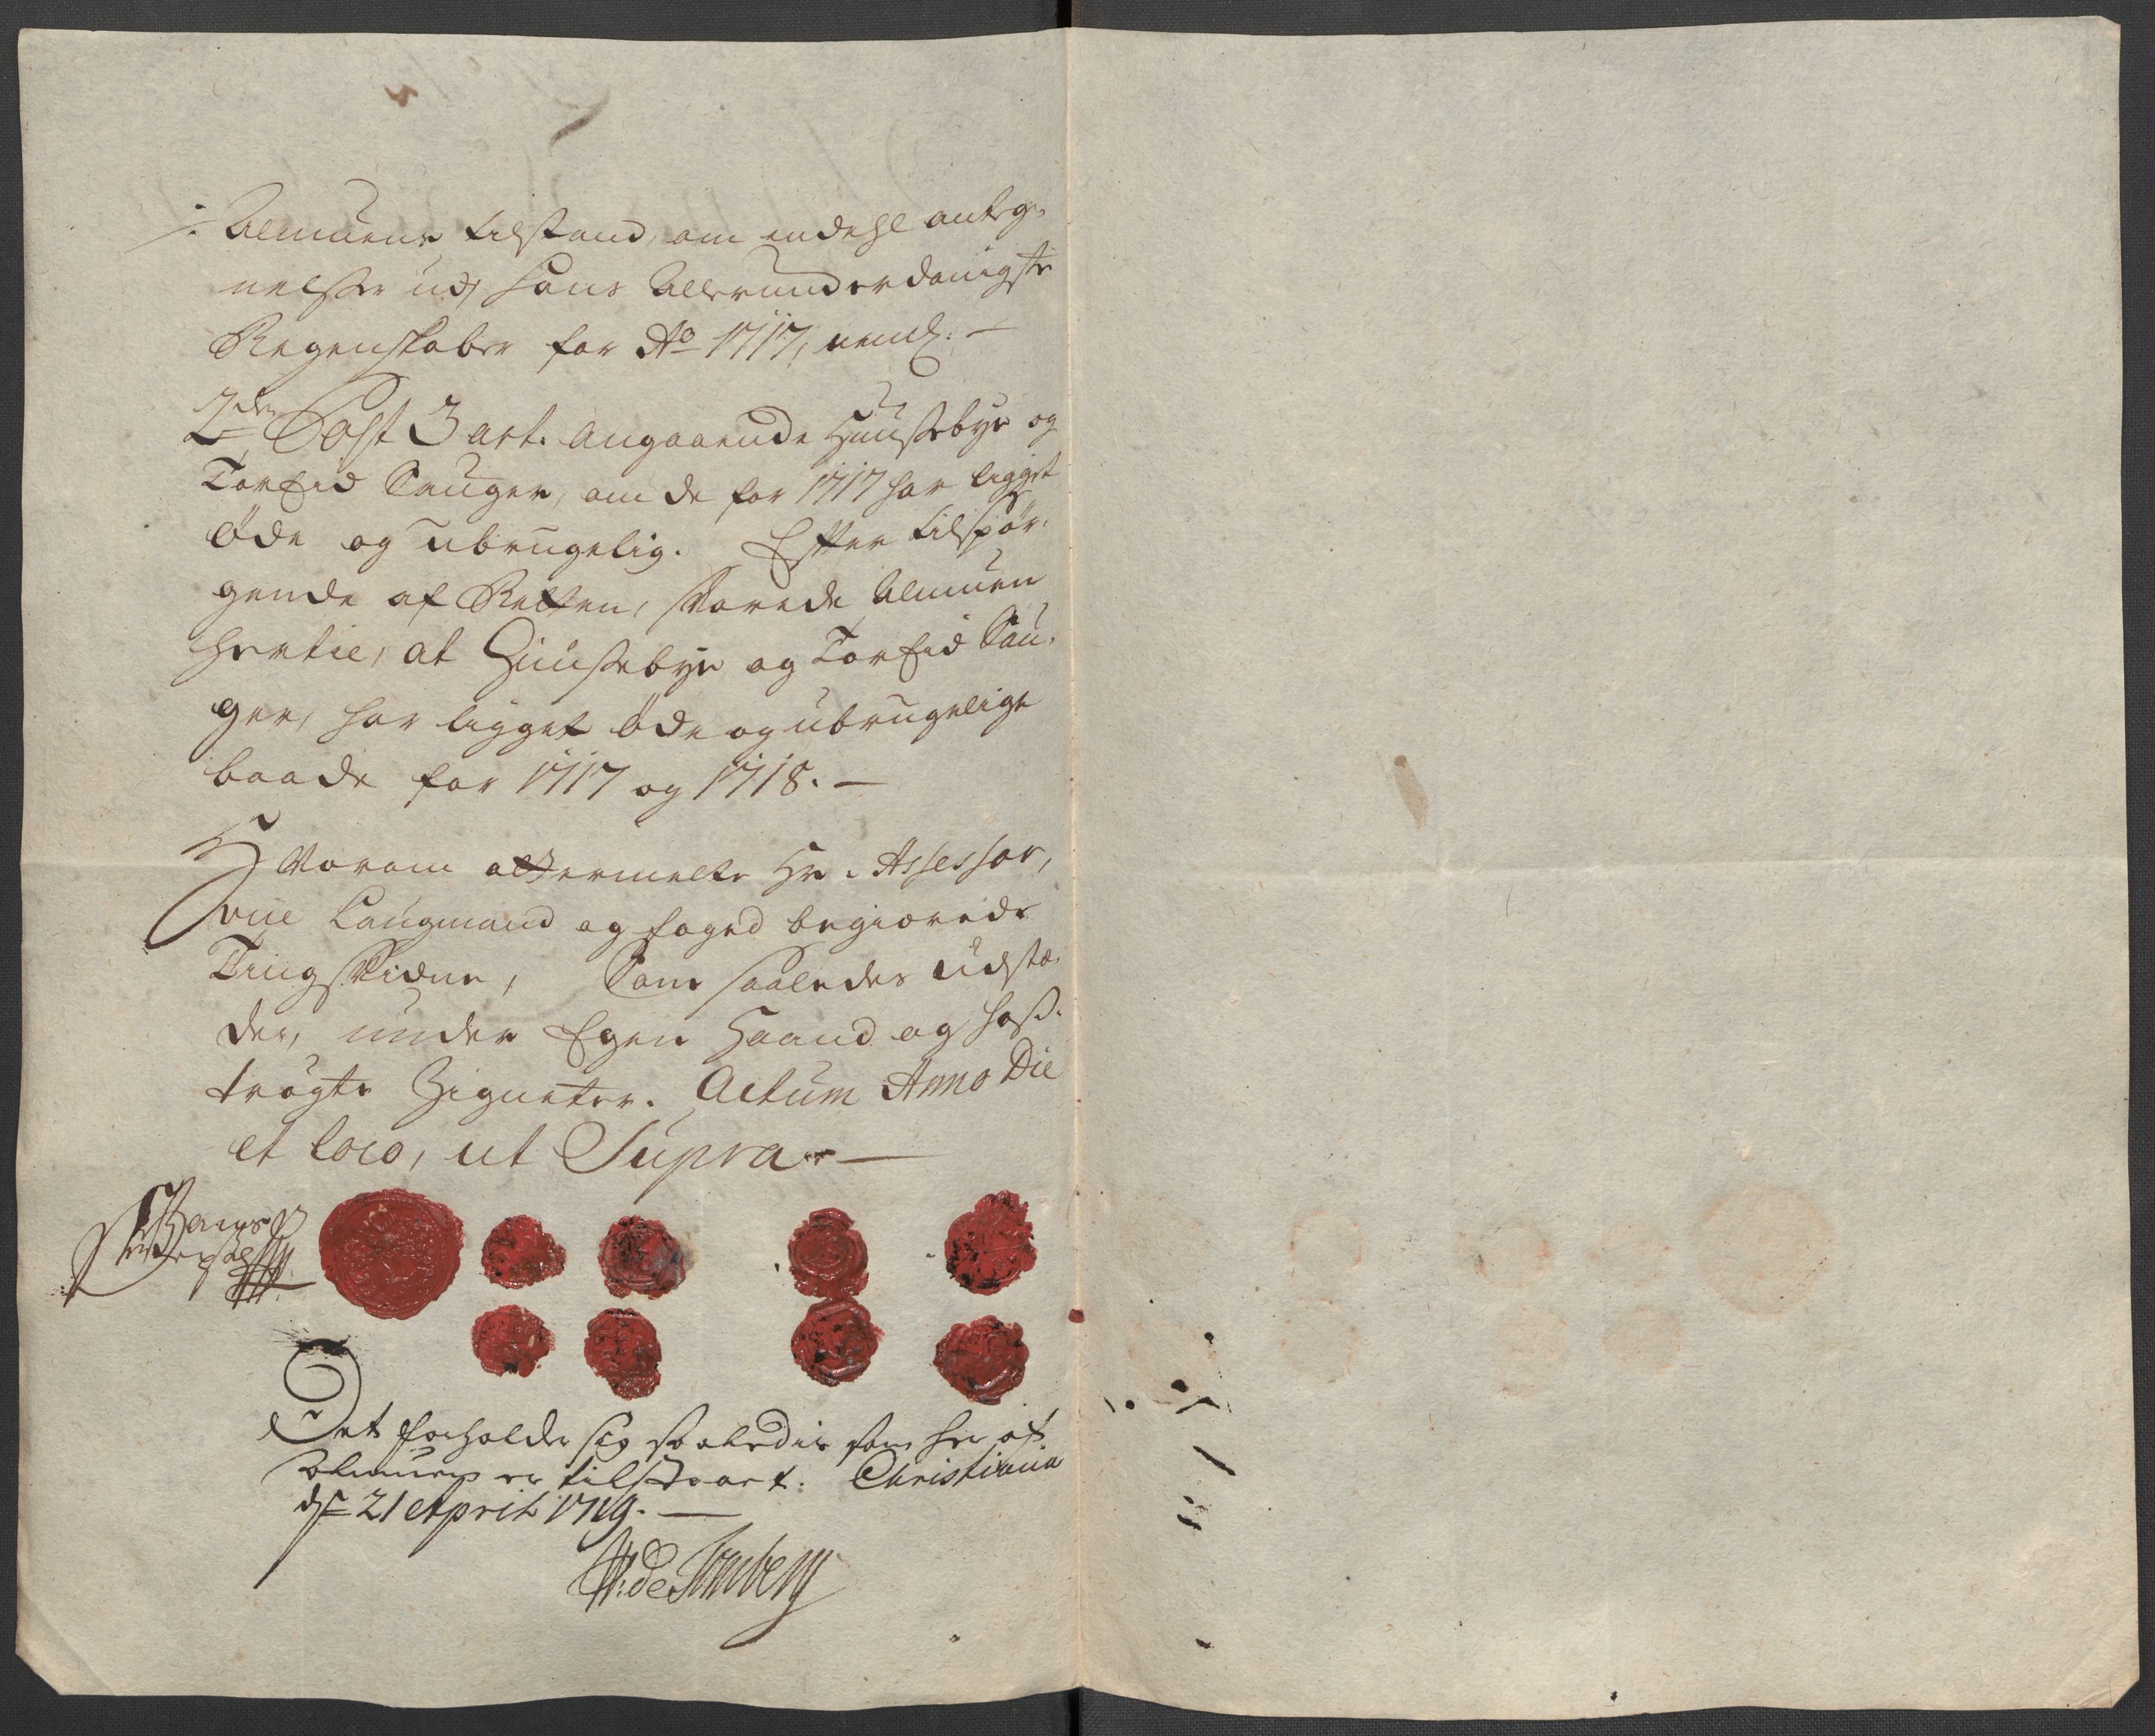 Almuens tilstand, om endehl anteg-
nelser udj hans Allerunderdanigste
Regenskaber for Ao 1717, neml: —
2den Post 3 art. angaaende Huusebye og
Torfid Sauger, om de for 1717 har ligget
øde og ubrugelig. Efter tilspør-
gende af Retten, svarede Almuen
hertil, at Huusebye og Torfid Sau-
ger, har ligget øde og ubrugelige
baade for 1717 og 1718. —
Hvorom altermelte Hr. Assessor,
vice Laugmand og foged begiærede
Tingsvidne, Som saaledes udstæ-
des, under Egen Haand og hoß-
trøgte Zigneter. Actum Anno Die
et loco, ut Supra —
Det forholder sig saaledis som her af
Almuen er tilsvaret. Christiania
dn 21 April 1719. —